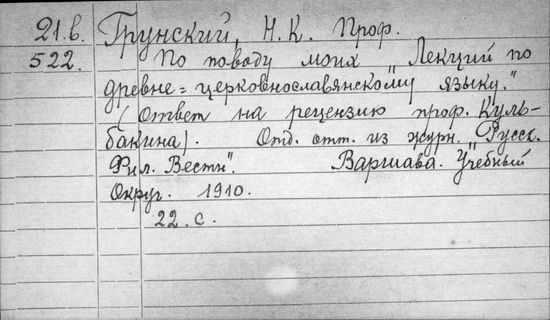 21.в. Грунский, Н. К. Проф.
522. По поводу моих „Лекций по
древне=церковнославянскому языку."
(Ответ на рецензию проф. Куль-
бакина). Отд. отт. из журн. „Русск.
Фил. Вестн". Варшава. Учебный
Округ. 1910.
22. с.